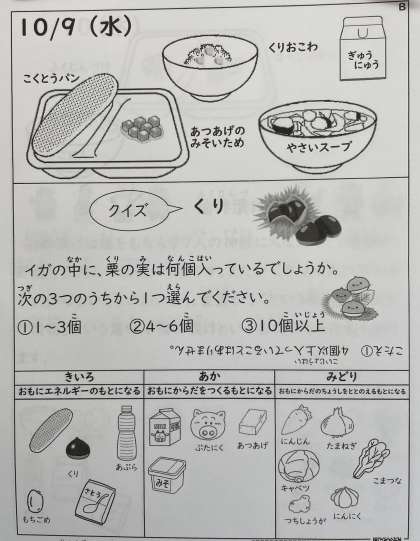 B
10/9(水)
くりおこわ
ぎゅう
にゅう
こくとうパン
あつあげの
みそいため
やさいスープ
クイズ
くり
イガの中に、栗の実は何個入っているでしょうか。
なか くり み なんこはい
次の3つのうちから1つ選んでください。
つぎ えら
①1～3個 ②4～6個 ③10個以上
こ こ こ いじょう
こたえ① 4個以上入っていることはありません。
こいじょうはい
きいろ
あか
みどり
おもにエネルギーのもとになる
おもにからだをつくるもとになる
おもにからだのちょうしをととのえるもとになる
くり
あぶら
もちごめ
さとう
ぶたにく
あつあげ
みそ
にんじん
たまねぎ
キャベツ
こまつな
つちしょうが
にんにく